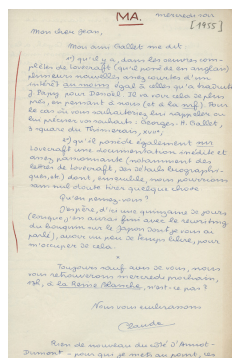 MA. mercredi soir
[1955]
Mon cher Jean,
Mon ami Gallet me dit
1°) qu'il y a, dans les œuvres com-
plètes de Lovecraft (qu'il possède en anglais)
plusieurs nouvelles assez courtes d'un
intérêt au moins égal à celles qu'a traduites
J. Papy pour Denoël. Il va voir cela de plus
près, en pensant à nous (et à la nrf). Pour
le cas où vous souhaiteriez lui rappeler ou
lui préciser vos souhaits : Georges H. Gallet,
3 square du Thimerais, XVII°,
2°) qu'il possède également sur
Lovecraft une documentation inédite et
assez passionnante (notamment des
lettres de Lovecraft, des détails biographi-
ques, etc) dont, ensuite, nous pourrions
sans nul doute tirer quelque chose
Qu'en pensez-vous ?
J'espère, d'ici une quinzaine de jours
(lorsque j'en aurai fini avec le rewriting
du bouquin sur le Japon dont je vous ai
parlé), avoir un peu de temps libre, pour
m'occuper de cela.
*
Toujours sauf avis de vous, nous
vous retrouverons mercredi prochain,
à la Reine Blanche, n'est-ce pas ?
Nous vous embrassons
Claude
Rien de nouveau du côté d'Amiot-
Dumont – pour que je mets au point, ces